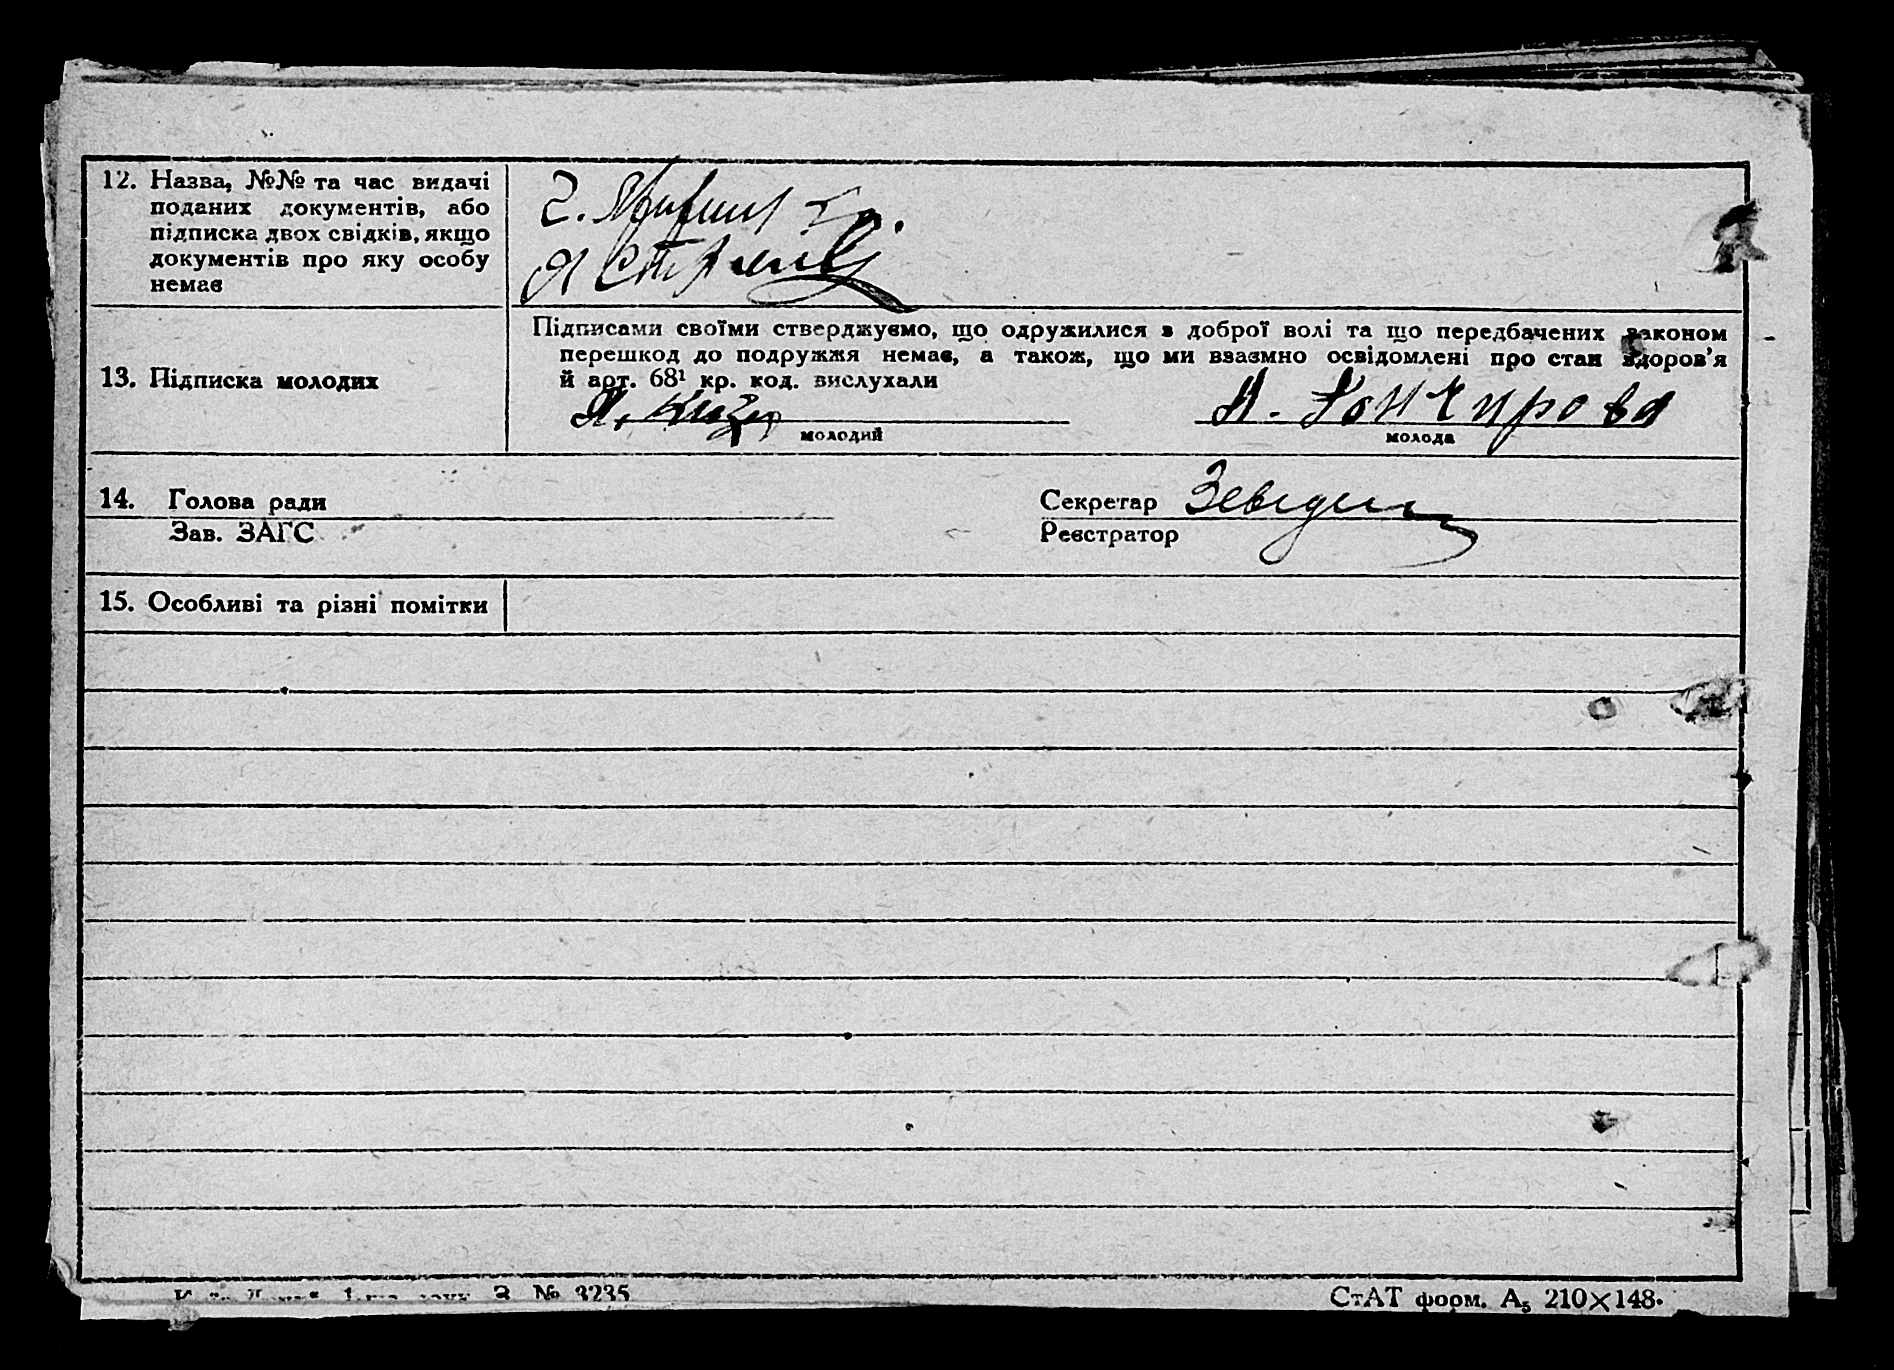 12. Назва, №№ та час видачі
поданих документів, або
підписка двох свідків, якщо
документів про яку особу
немає
2.
Підписами своїми стверджуємо, що одружилися з доброї волі та що передбачених законом
перешкод до подружжя немає, а також, що ми взаємно освідомлені про стан здоров'я
й арт. 68¹ кр. код. вислухали
13. Підписка молодих
молодий
А. Гончарова
молода
14. Голова ради
Секретар
Зав. ЗАГС
Реєстратор
15. Особливі та різні помітки
З. № 3235
СтАТ форм. А₅ 210×148.